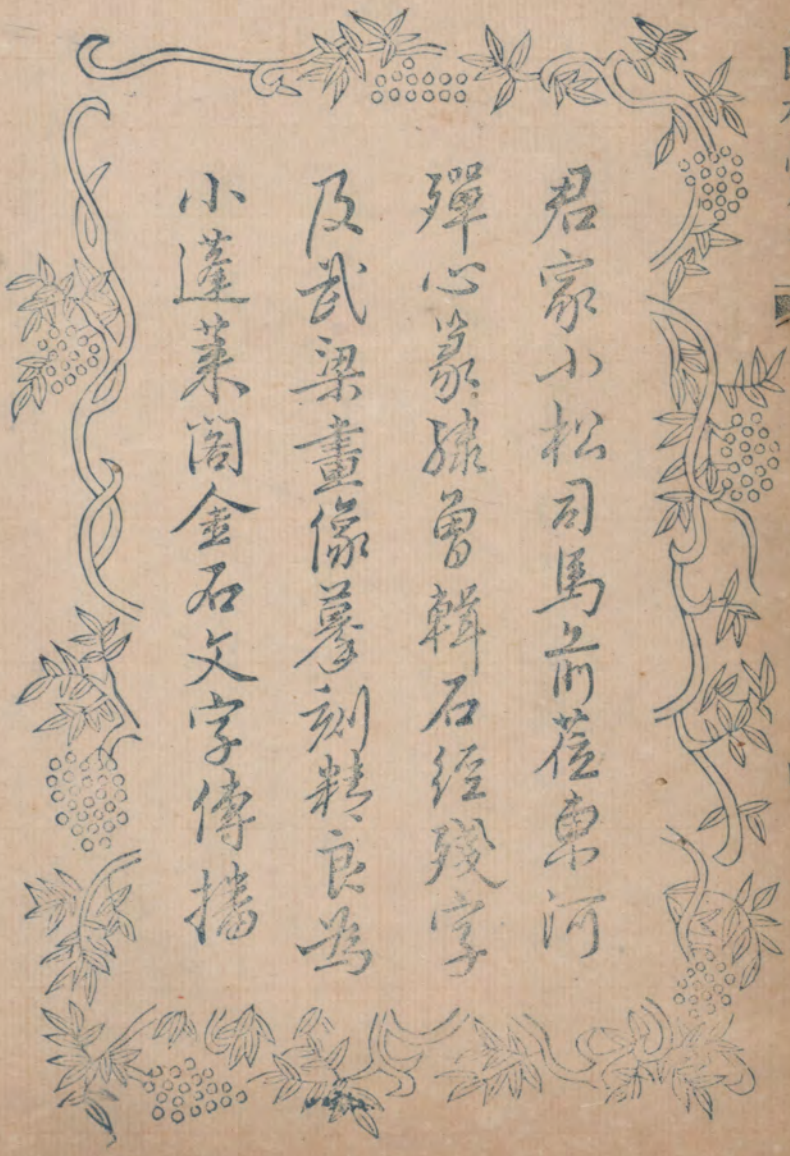 君家小松司馬前蒞東河
殫心篆隸曾輯石經殘字
及武梁畫像摹刻精良為
小蓬萊閣金石文字傳播